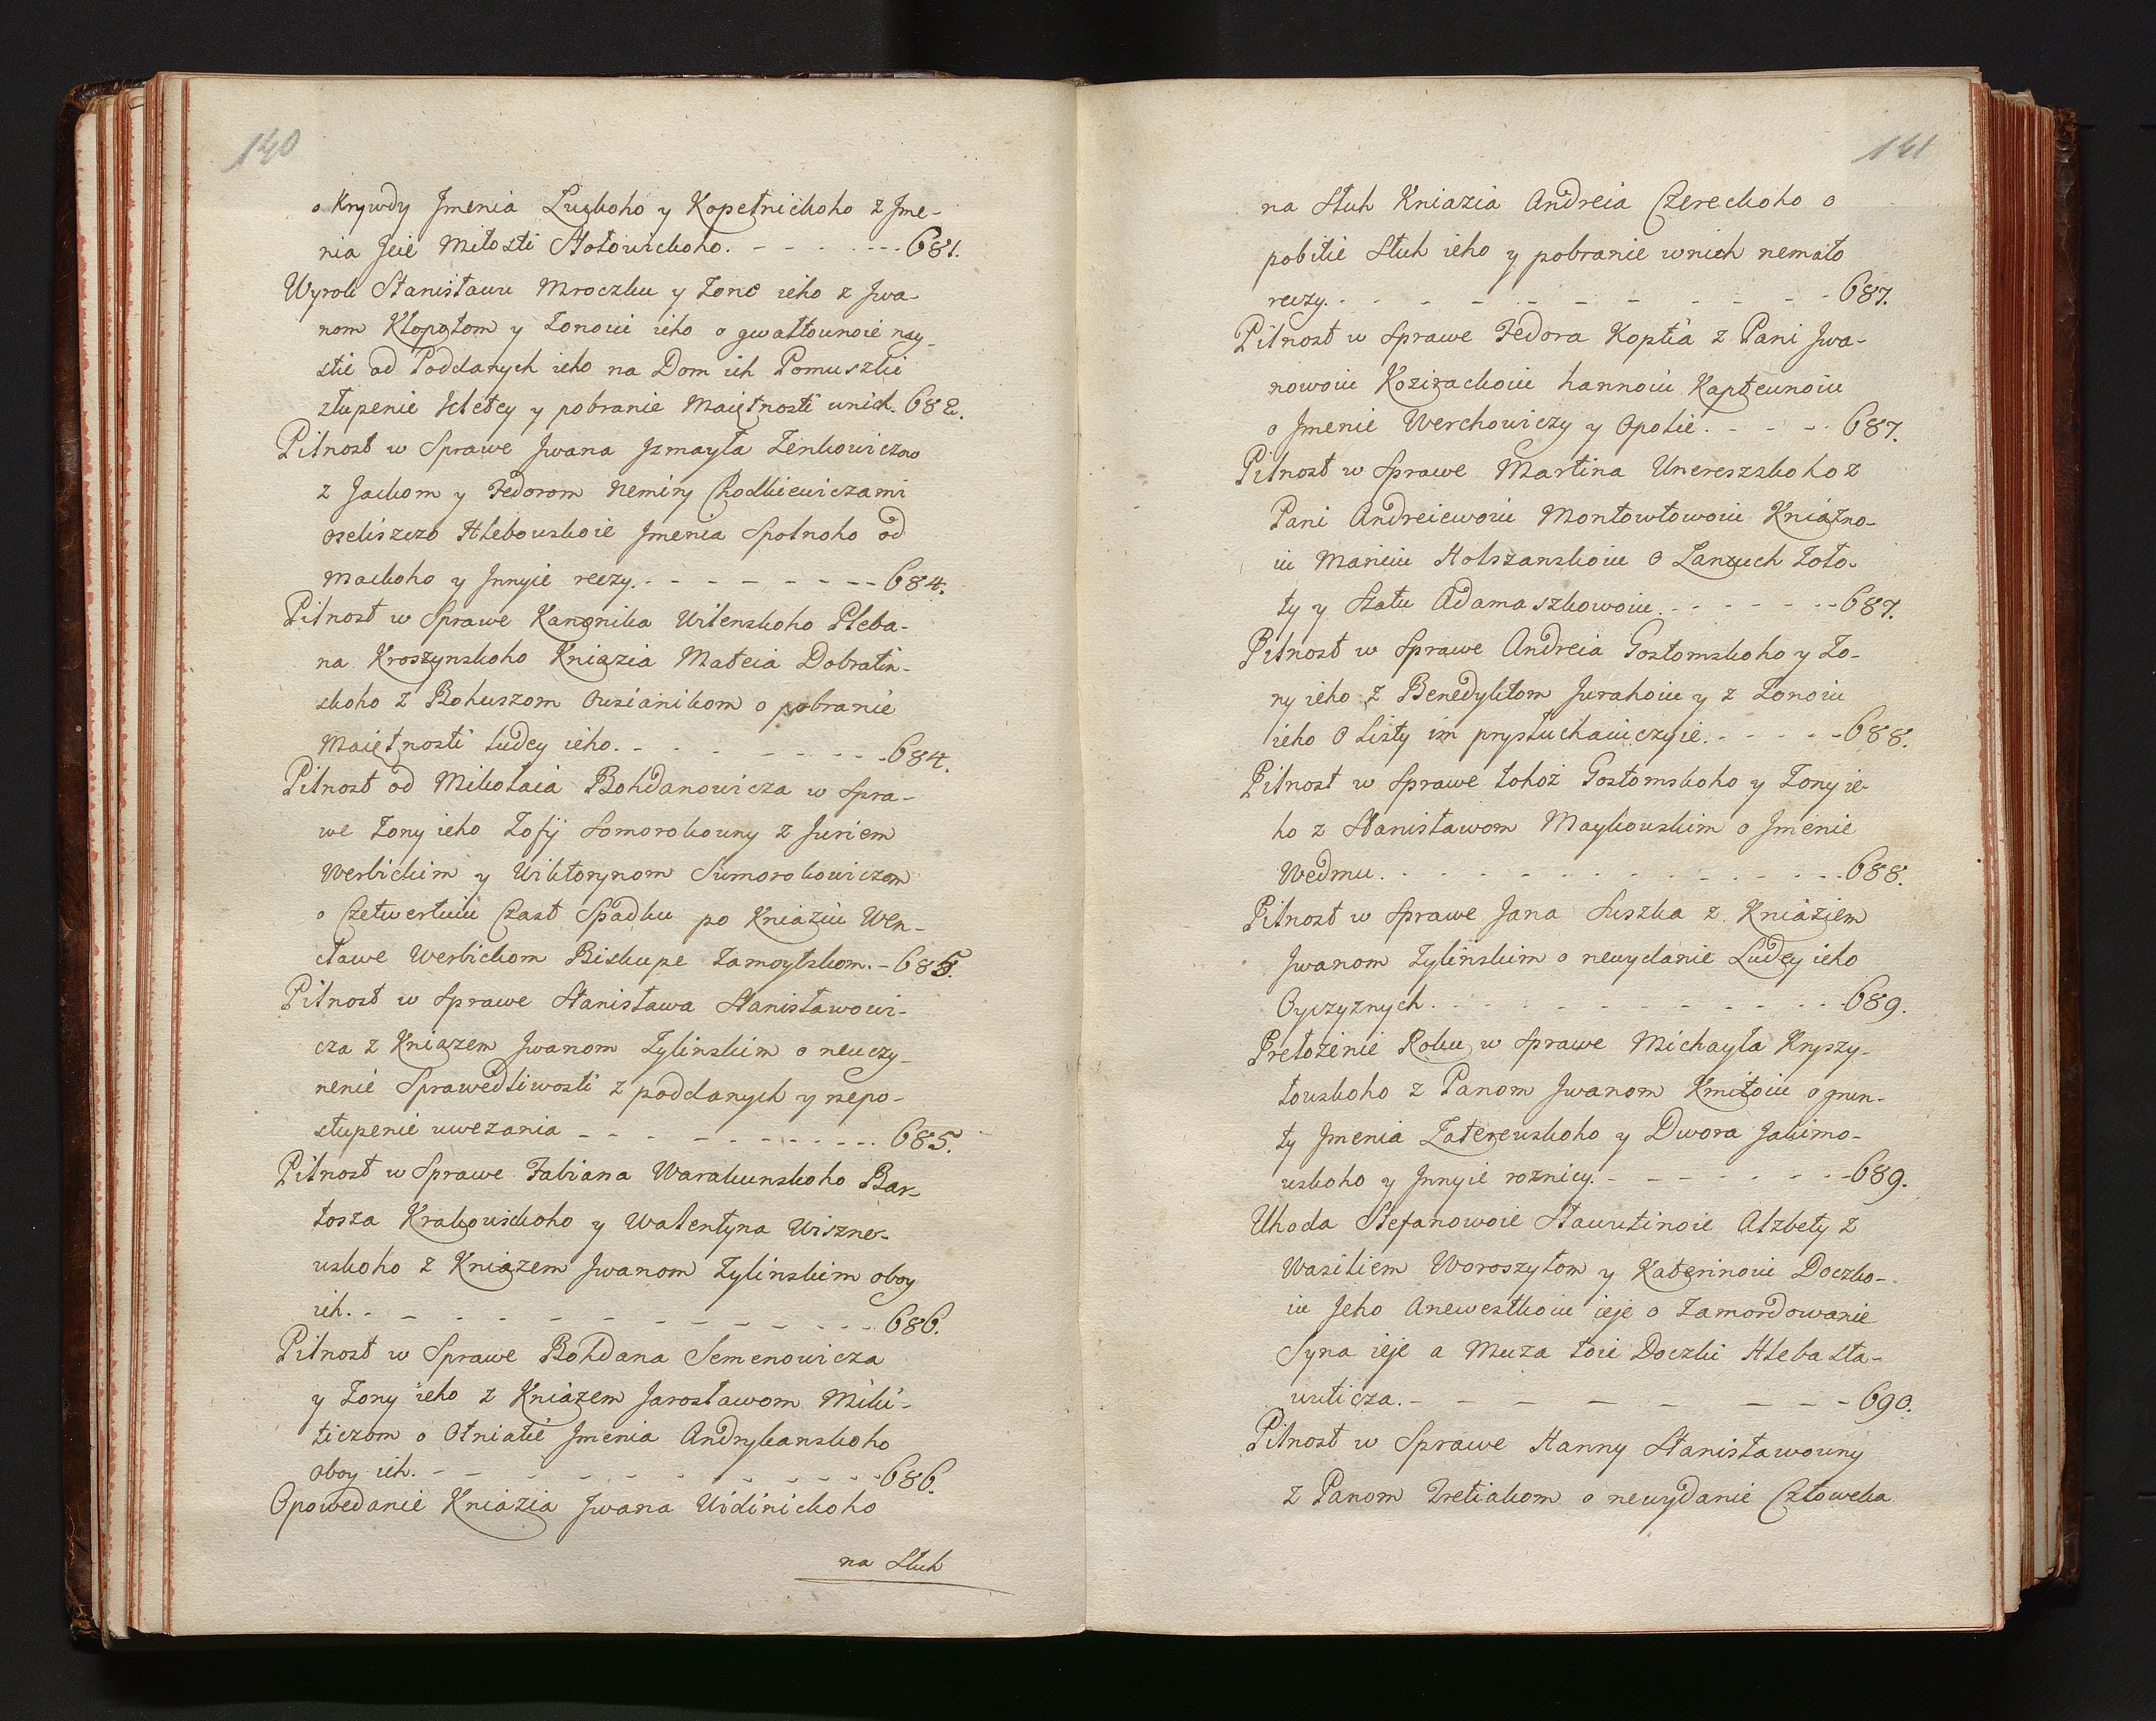 140
o Krywdy Jmenia Luckoho y Kopetnickoho z Jme-
nia Jeie Miłosti Hołowickoho. - - - - - - - 681.
Wyrok Stanisławu Mroczku y Zone ieho z Jwa-
nom Kłopotom y Zonoiu ieho o gwałtownoie nay-
stie od Poddanych ieho na Dom ich Pomuszki
złupenie Kletey y pobranie Maiętnosti wnich. 682.
Pilnost w Sprawe Jwana Jzmayła Zenkowicza
z Jackom y Fedorom Nemiry Chodkiewiczami
oseliszczo Hlebowskoie Jmenia Spolnoho od
Mackoho y Jnnyie reczy. - - - - - - - - - 684.
Pilnost w Sprawe Kanonika Wilenskoho Pleba-
na Kroszynskoho Kniazia Mateia Dobratin-
skoho z Bohuszom Owsianikom o pobranie
Maiętnosti Ludey ieho. - - - - - - - - - 684.
Pilnost od Mikołaia Bohdanowicza w Spra-
we Zony ieho Zofij Somorokowny z Juriem
Werbickim y Wiktorynom Sumorokowiczom
o Czetwertuiu Czast Spadku po Kniaziu Wen-
cławe Werbickom Biskupe Zamoytskom. - 685.
Pilnost w Sprawe Stanisława Stanisławowi-
cza z Kniazem Jwanom Zylinskim o neuczy-
nenie Sprawedliwosti z poddanych y nepo-
stupenie uwezania - - - - - - - - - - - 685.
Pilnost w Sprawe Fabiana Warakunskoho Bar-
tosza Krakowskoho y Walentyna Wiszne-
wskoho z Kniazem Jwanom Zylinskim oboy
ich. - - - - - - - - - - - - - - 686.
Pilnost w Sprawe Bohdana Semenowicza
y Zony ieho z Kniazem Jarosławom Miki-
ticzom o Otniatie Jmenia Andrykanskoho
oboy ich. - - - - - - - - - - - - 686.
Opowedanie Kniazia Jwana Widinickoho
na Słuh
141
na Słuh Kniazia Andreia Czereckoho o
pobitie Słuh ieho y pobranie wnich nemało
reczy. - - - - - - - - - - - - 687.
Pilnost w Sprawe Fedora Koptia z Pani Jwa-
nowoiu Kozirackoiu hannoiu Kaptewnoiu
o Jmenie Werchowiczy y Opolie. - - - - 687.
Pilnost w Sprawe Martina Unereszskoho z
Pani Andreiewoiu Montowtowoiu Kniazno-
iu Mariiu Holszanskoiu o Lancuch Zoło-
ty y Szatu Adamaszkowoiu. - - - - - - - 687.
Pilnost w Sprawe Andreia Gostomskoho y Zo-
ny ieho z Benedyktom Jurahoiu y z Zonoiu
ieho o Listy im prysłuchaiuczyie. - - - - - 688.
Pilnost w Sprawe tohoż Gostomskoho y Zony ie-
ho z Stanisławom Maykowskim o Jmenie
Wedmu. - - - - - - - - - - - - - - 688.
Pilnost w Sprawe Jana Suszka z Kniaziem
Jwanom Zylinskim o newydanie Ludey ieho
Oyczyznych. - - - - - - - - - - - - 689.
Prełożenie Roku w Sprawe Michayła Kryszy-
towskoho z Panom Jwanom Kmitoiu o grun-
ty Jmenia Zaterewskoho y Dwora Jakimo-
wskoho y Jnnyie roznicy. - - - - - - - - 689.
Uhoda Stefanowoie Stawutinoie Alzbety z
Wasiliem Woroszyłom y Katerinoiu Doczko-
iu Jeho Anewestkoiu ieje o Zamordowanie
Syna ieje a Muza toie Doczki Hleba Sta-
wuticza. - - - - - - - - - 690.
Pilnost w Sprawe Hanny Stanisławowny
z Panom Tretiakom o newydanie Człoweka